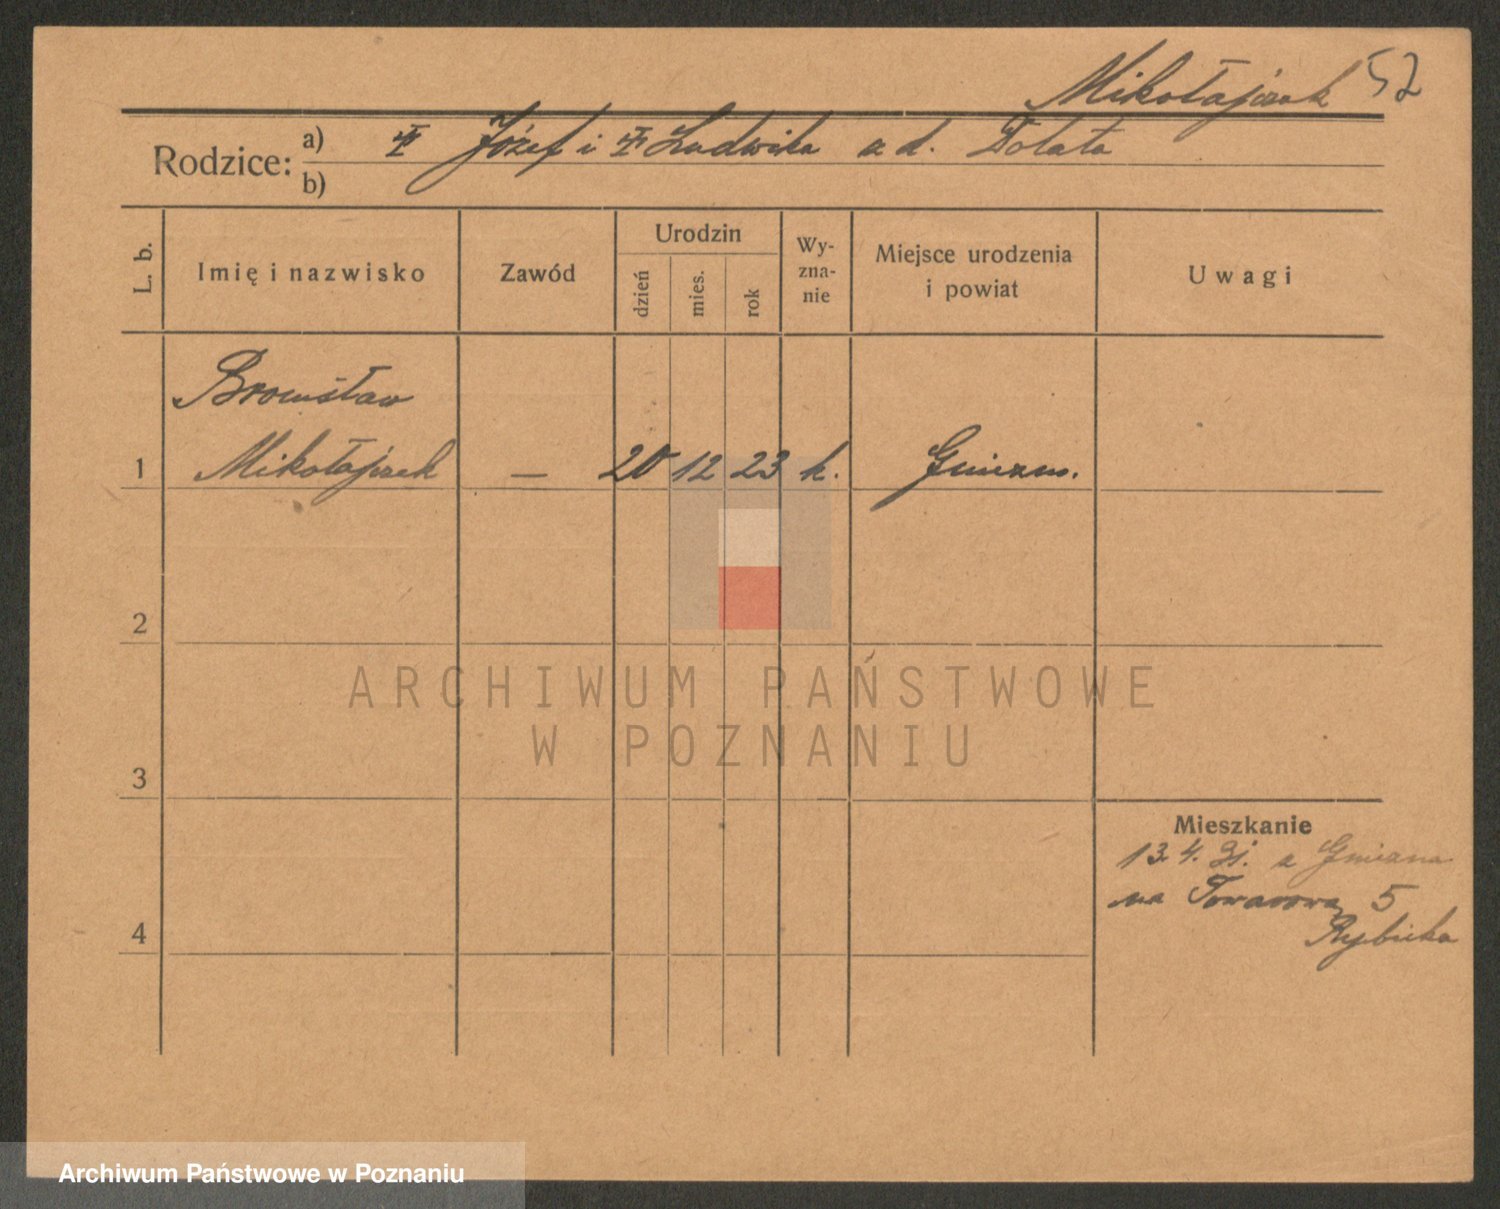 Mikołajczak 52
Rodzice: a) Józef i Ludwika z d. Tolata
b)
L. b. Imię i nazwisko Zawód Urodzin dzień mies. rok Wy-zna-nie Miejsce urodzenia i powiat Uwagi
Bronisław
1 Mikołajczak — 20 12 23 k. Gniezno.
2
ARCHIWUM PAŃSTWOWE
W POZNANIU
3
Mieszkanie
13. 4. 31. z Gniezna
na Towarową 5
4
Rybicka
Archiwum Państwowe w Poznaniu